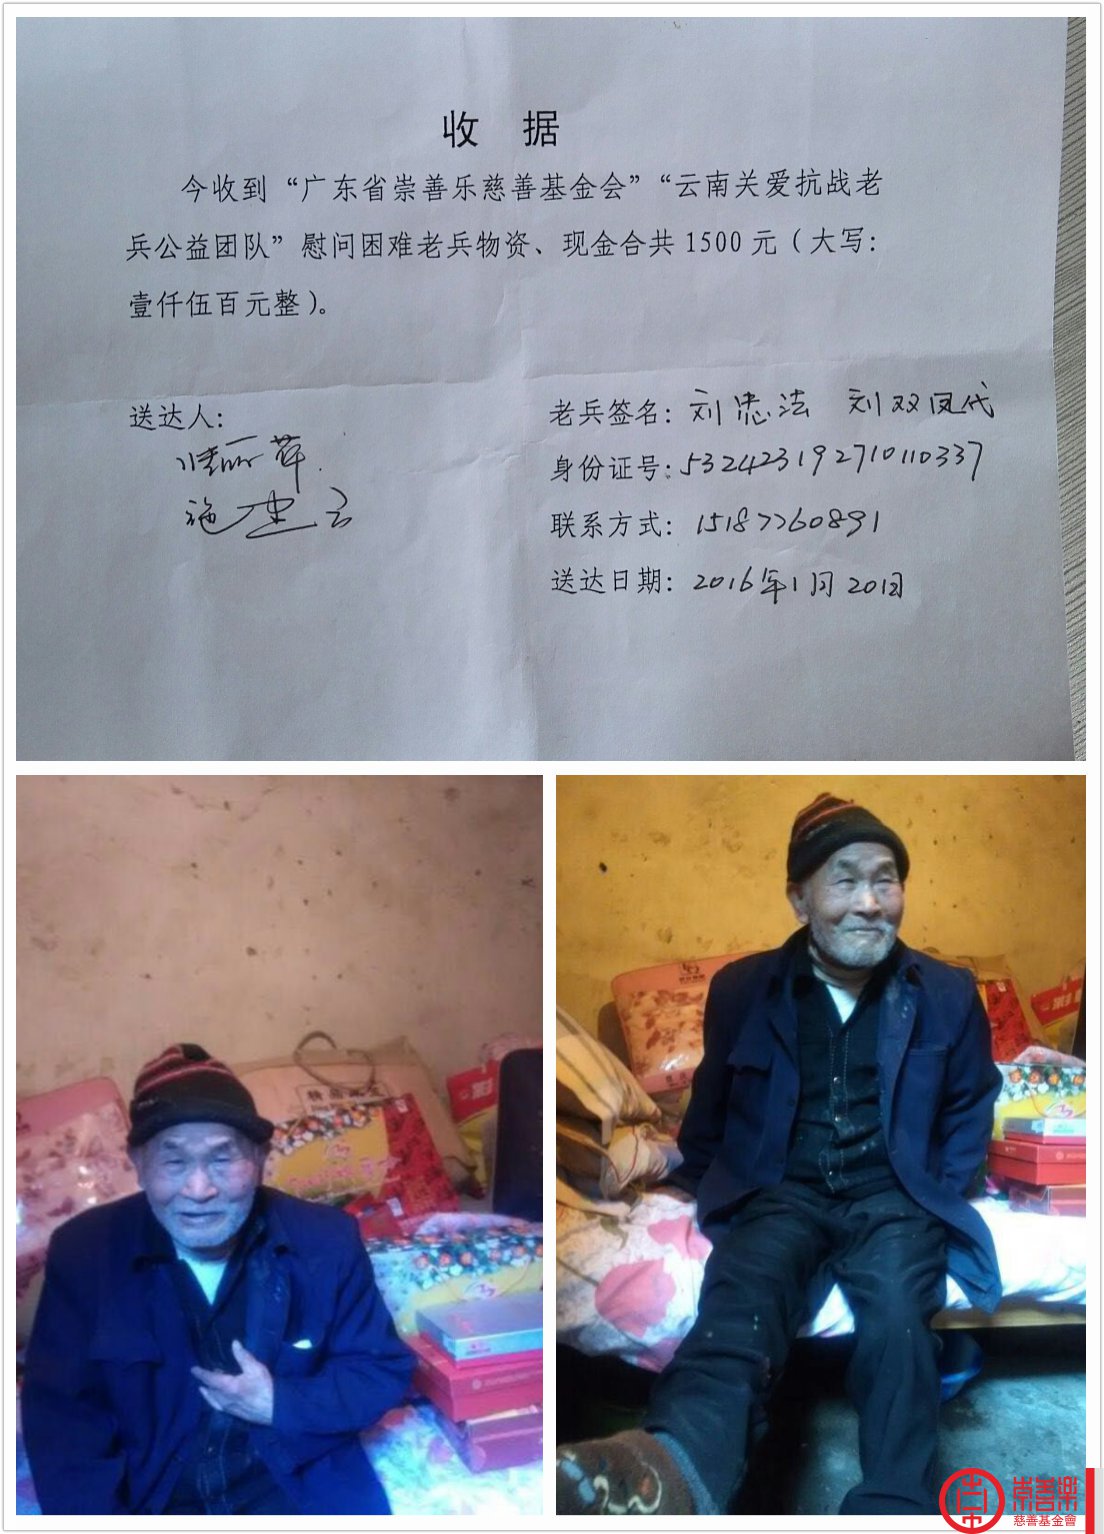 收 据
今收到“广东省崇善乐慈善基金会”“云南关爱抗战老
兵公益团队”慰问困难老兵物资、现金合共 1500 元（大写：
壹仟伍百元整）。
送达人：
老兵签名：刘忠法 刘双凤代
身份证号：532423192710110337
联系方式：15187760891
送达日期：2016年1月20日
崇善樂
慈善基金會